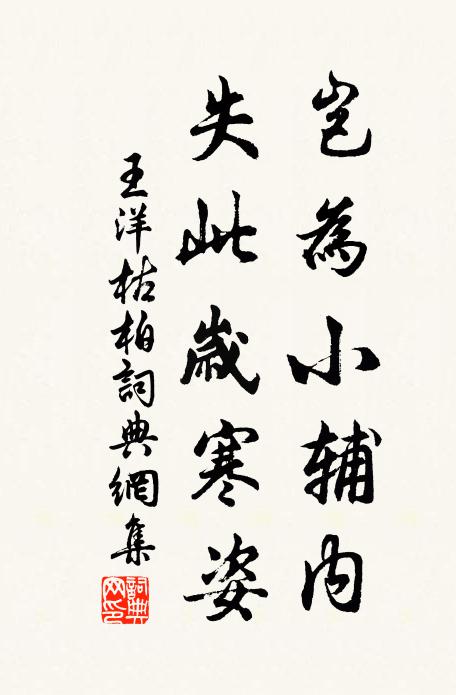 岂為小輔内
失此歲寒姿
王洋枯柏詞典網集
詞典网印